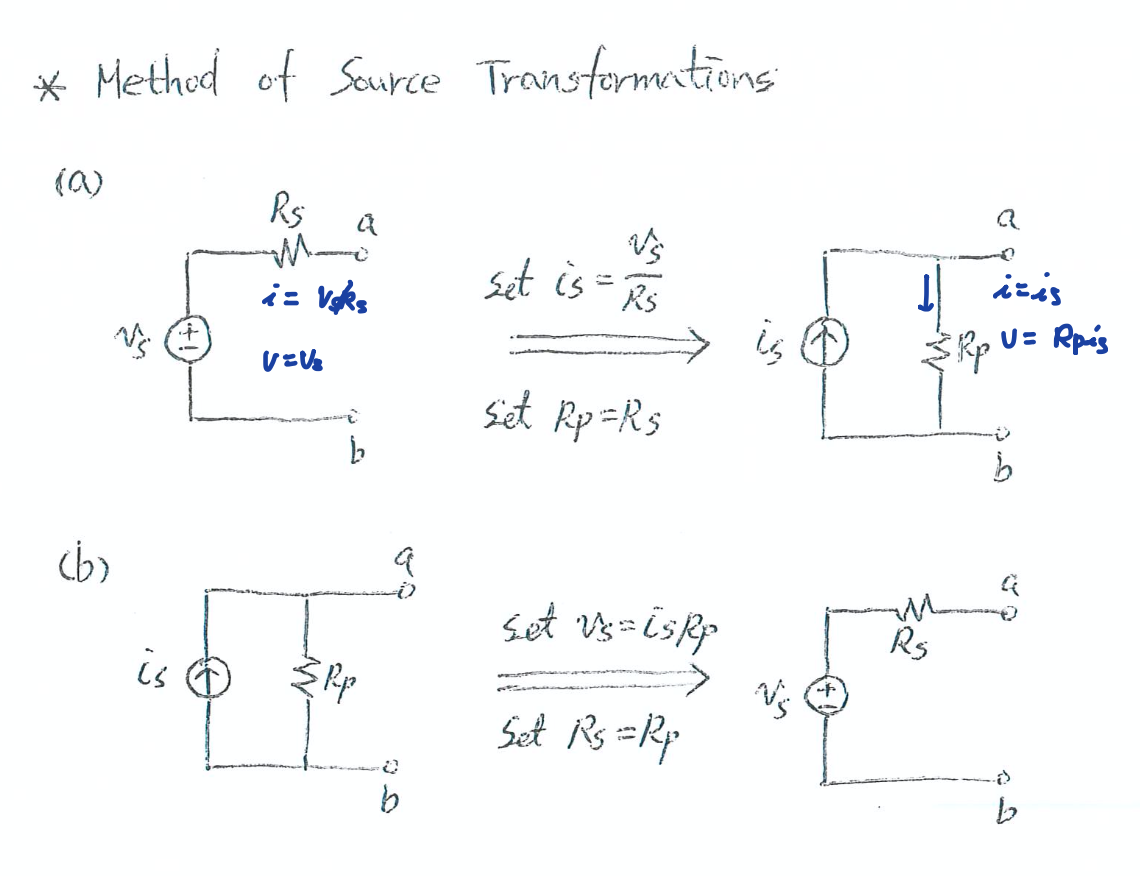 * Method of Source Transformations
(a)
Rs a
i = Vs/Rs
vs
v=Vs
b
set is = vs/Rs
set Rp=Rs
a
is
Rp
i=is
v= Rpis
b
(b)
a
is
Rp
b
set vs=isRp
set Rs=Rp
a
Rs
vs
b